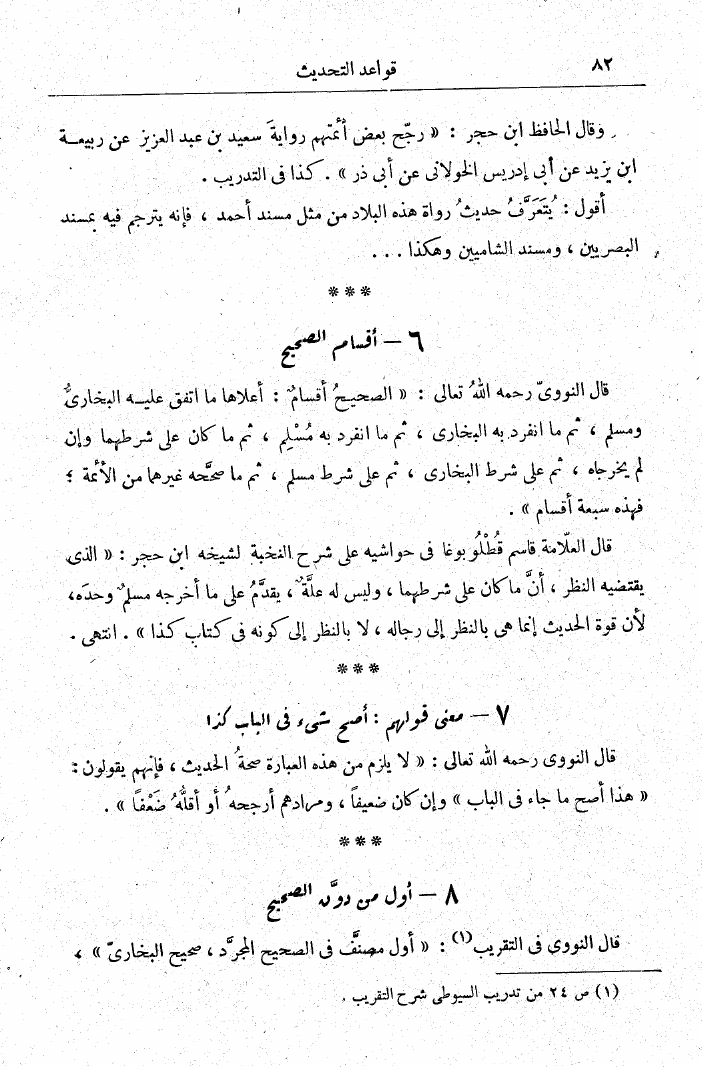 ٨٢
قواعد التحديث
وقال الحافظ ابن حجر : « رجّح بعض أئمّتهم روايةَ سعيد بن عبد العزيز عن ربيعـة
ابن يزيد عن أبى إدريس الخولانى عن أبى ذر » . كذا فى التدريب .
أقول : يُتَعَرَّفُ حديثُ رواة هذه البلاد من مثل مسند أحمد ، فإنه يترجم فيه بمسند
البصريين ، ومسند الشاميين وهكذا . . .
***
٦ – أقسام الصحيح
قال النووىّ رحمه اللهُ تعالى : « الصحيحُ أقسامٌ : أعلاها ما اتفق عليـه البخارىُّ
ومسلم ، ثم ما انفرد به البخارى ، ثم ما انفرد به مُسْلِم ، ثم ما كان على شرطهما وإن
لم يخرجاه ، ثم على شرط البخارى ، ثم على شرط مسلم ، ثم ما صحَّحه غيرهما من الأئمة ؛
فهذه سبعة أقسام » .
قال العلّامة قاسم قُطْلُو بوغا فى حواشيه على شرح النخبة لشيخه ابن حجر : « الذى
يقتضيه النظر ، أنَّ ما كان على شرطهما ، وليس له علَّةٌ ، يقدَّمُ على ما أخرجه مسلمٌ وحدَه،
لأن قوة الحديث إنما هى بالنظر إلى رجاله ، لا بالنظر إلى كونه فى كتاب كذا » . انتهى .
***
٧ – معنى قولهم : أصح شىء فى الباب كذا
قال النووى رحمه الله تعالى : « لا يلزم من هذه العبارة صحةُ الحديث ، فإنهم يقولون :
« هذا أصح ما جاء فى الباب » وإن كان ضعيفاً ، ومرادهم أرجحهُ أو أقلُّهُ ضَعْفاً » .
***
٨ – أول من دوَّن الصحيح
قال النووى فى التقريب(١) : « أول مصنَّف فى الصحيح المجرَّد ، صحيح البخارىّ » ،
(١) ص ٢٤ من تدريب السيوطى شرح التقريب .